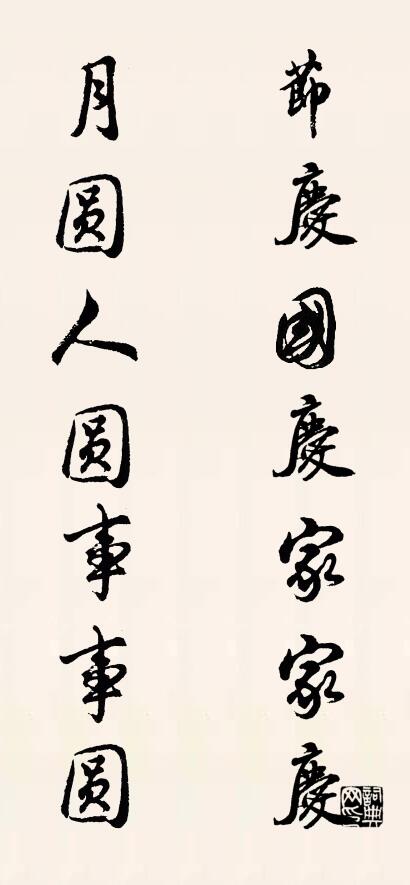 節慶國慶家家慶
月圓人圓事事圓
詞典網